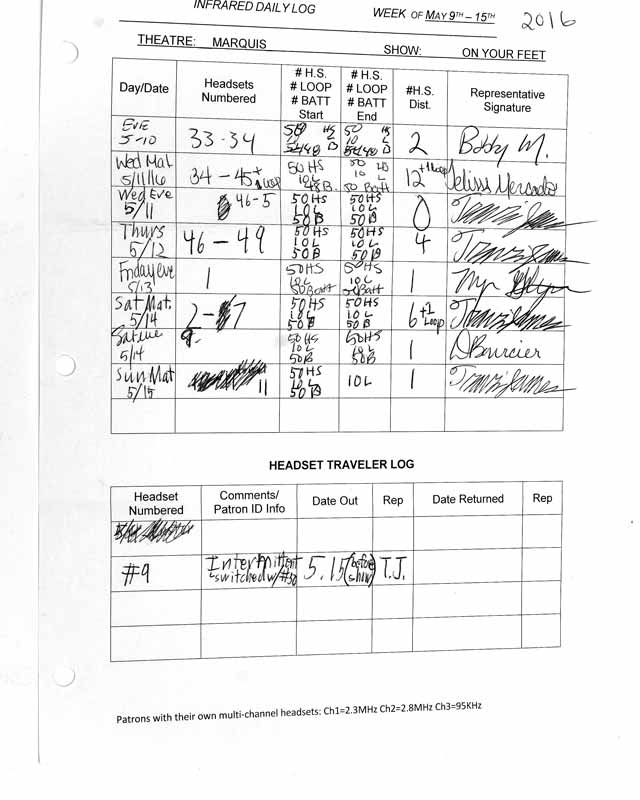 INFRARED DAILY LOG
WEEK OF MAY 9TH – 15TH 2016
THEATRE: MARQUIS SHOW: ON YOUR FEET
Day/Date
Headsets Numbered
# H.S. # LOOP # BATT Start
# H.S. # LOOP # BATT End
#H.S. Dist.
Representative Signature
EVE 5-10 33-34 2 Bobby M.
Wed Mat. 5/11/16 34 – 45 + Loop 50 HS 10 L 50 Batt 12 +1 Loop
Wed Eve 5/11 46-5 50HS 10L 50B 50HS 10L 50B 0 Travis James
Thurs 5/12 46 – 49 50HS 10L 50B 50HS 10L 50B 4 Travis James
Friday eve 5/13 1 50HS 10L 50Batt 50HS 10L 50Batt 1
Sat Mat. 5/14 2 – 7 50HS 10L 50B 50HS 10L 50B 6 +1 Loop Travis James
Sat eve 5/14 9. 50HS 10L 50B 50HS 10L 50B 1 D Bourcier
Sun Mat 5/15 11 50HS 10L 50B 10L 1 Travis James
HEADSET TRAVELER LOG
Headset Numbered
Comments/ Patron ID Info
Date Out
Rep
Date Returned
Rep
#9 Intermittent switched w/ #50 5.15 (before show) T.J.
Patrons with their own multi-channel headsets: Ch1=2.3MHz Ch2=2.8MHz Ch3=95KHz